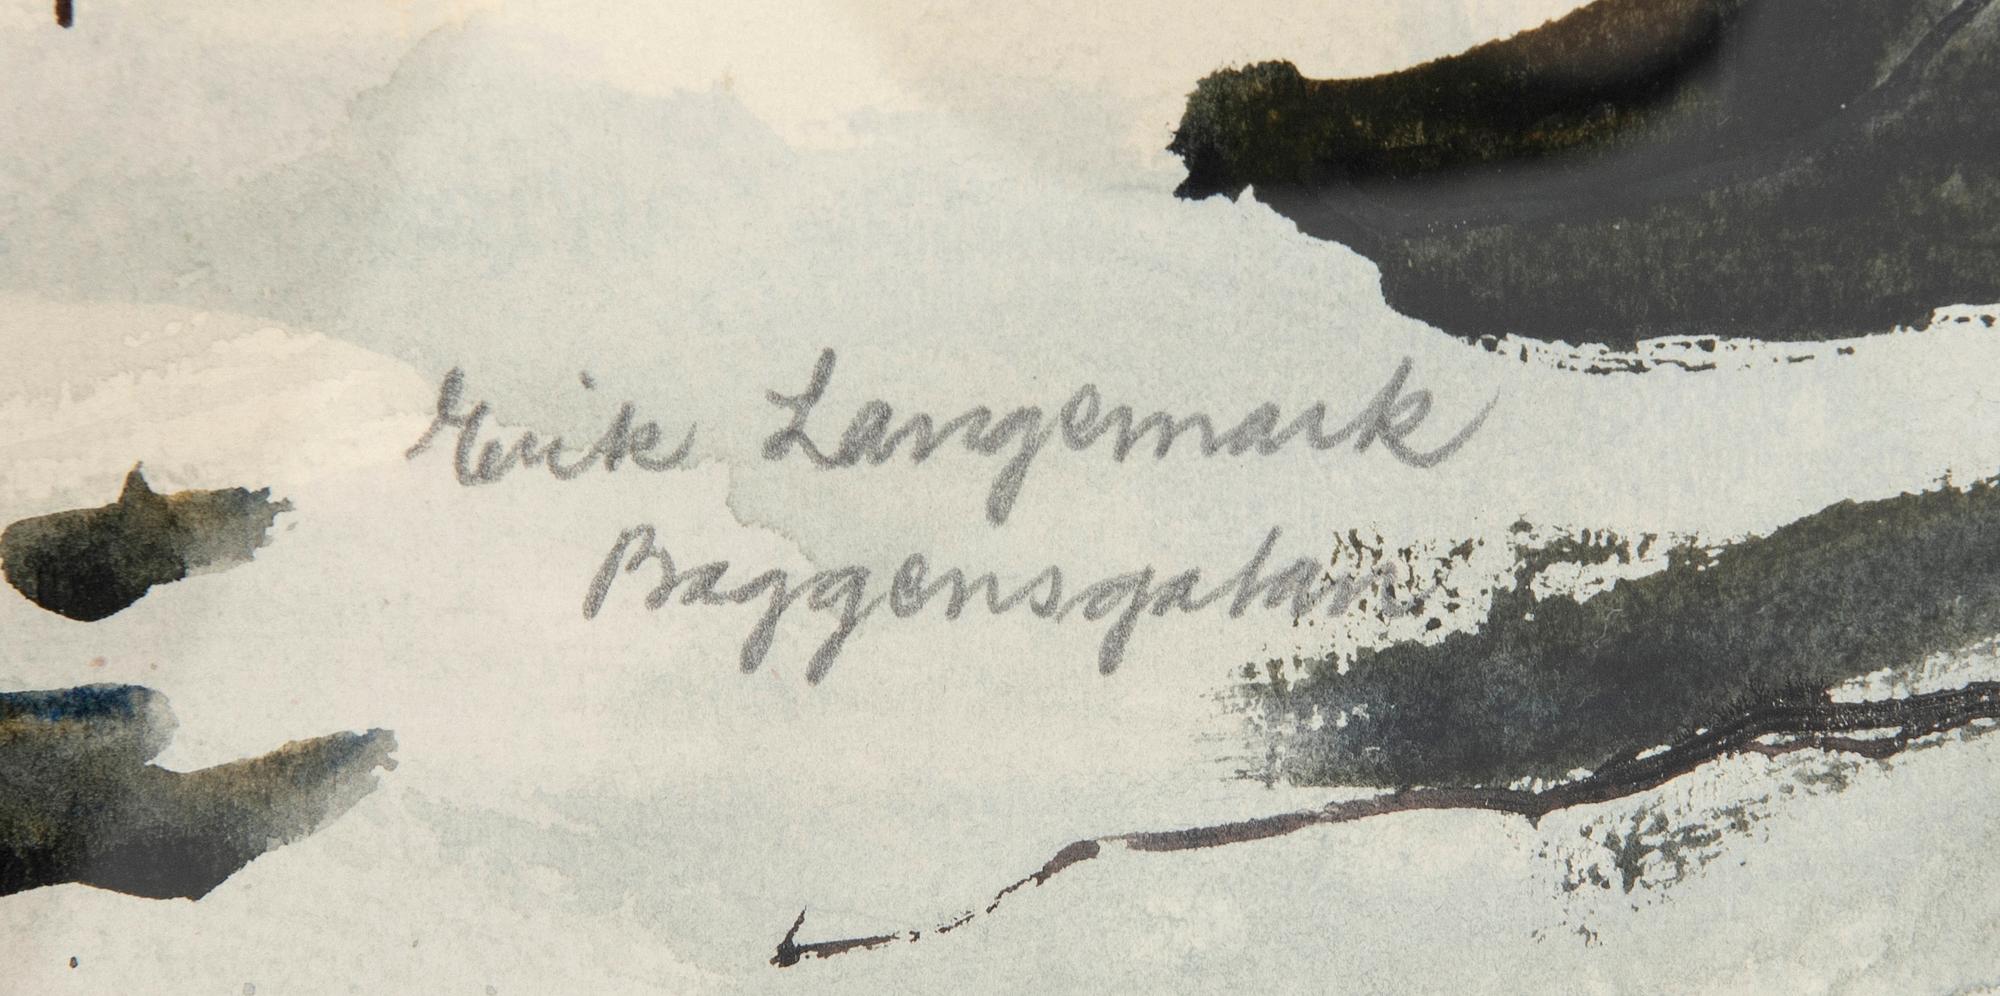 Erik Langemark
Baggensgatan